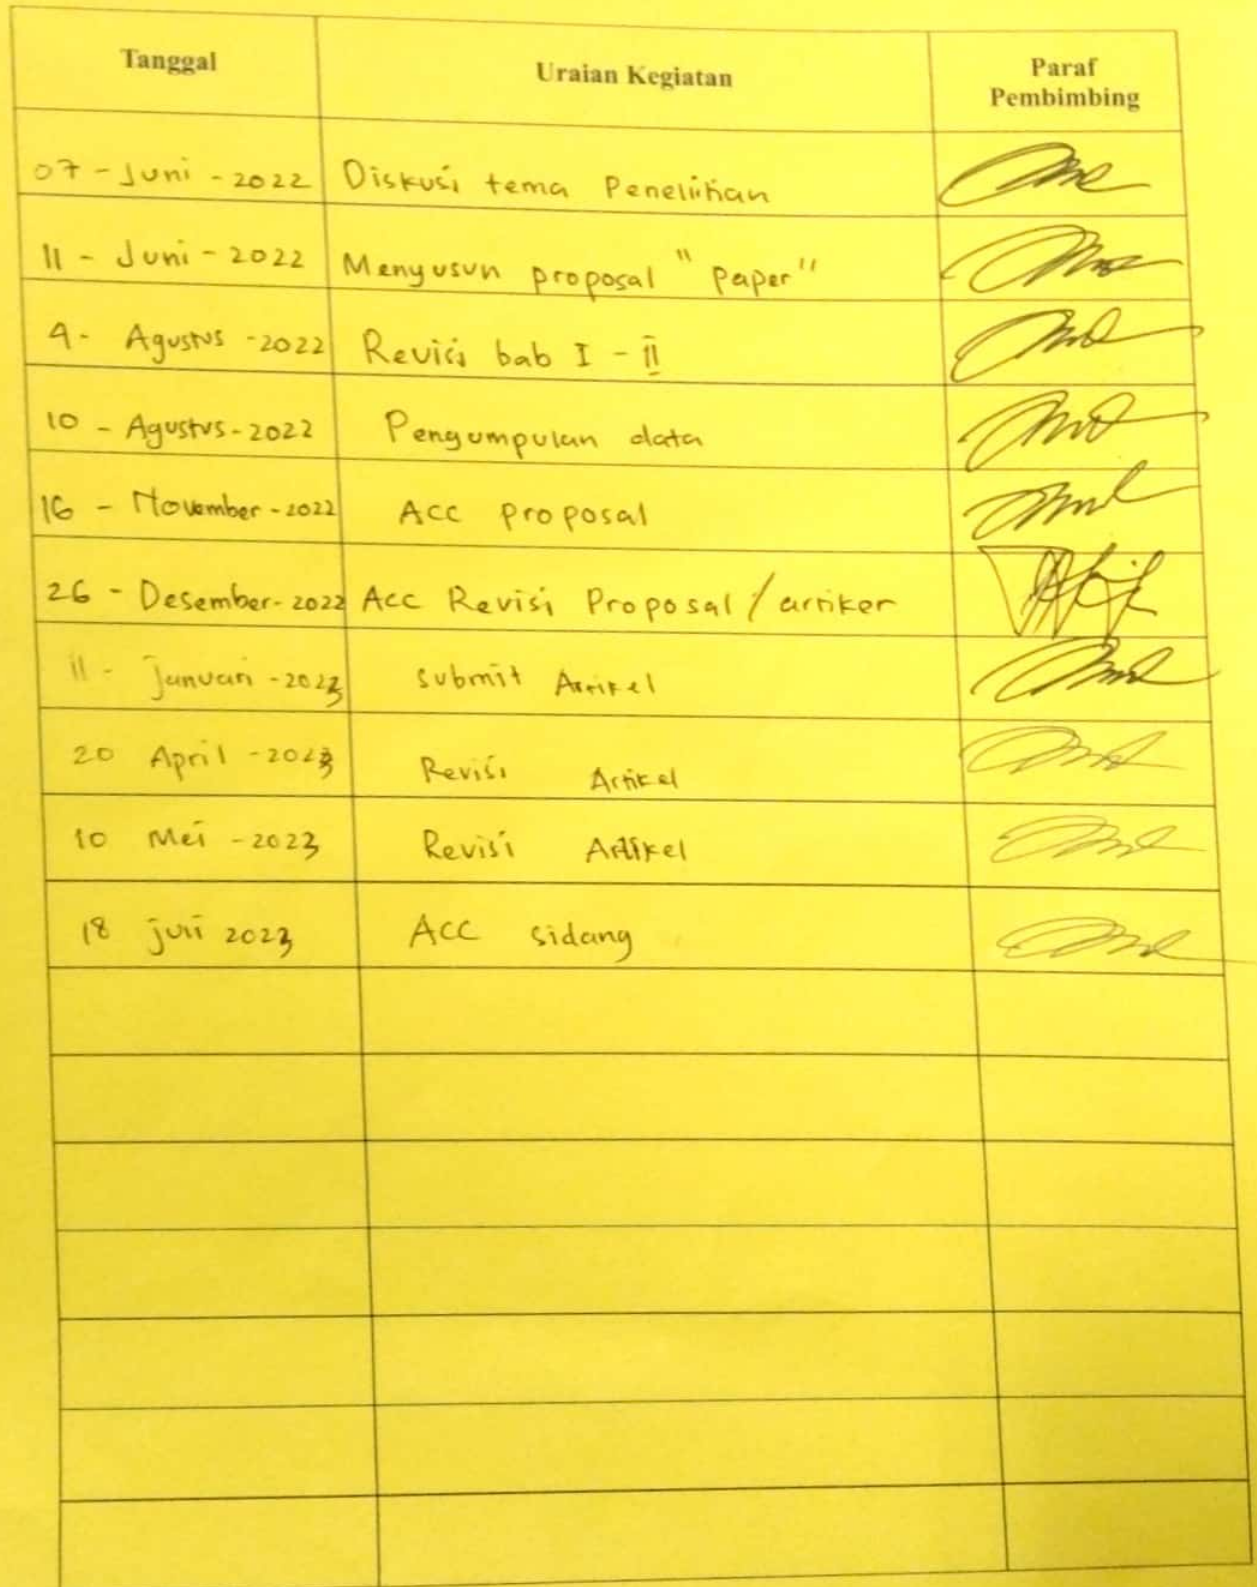 Tanggal Uraian Kegiatan Paraf
Pembimbing
07 - Juni - 2022 Diskusi tema Penelitian
11 - Juni - 2022 Menyusun proposal "paper"
Agustus - 2022 Revisi bab I - II
10 - Agustus - 2022 Pengumpulan data
16 - November - 2022 Acc proposal
26 - Desember - 2022 Acc Revisi Proposal / artiker
11 - Januari - 2023 submit Artikel
20 April - 2023 Revisi Artikel
10 Mei - 2023 Revisi Artikel
18 2023 ACC sidang